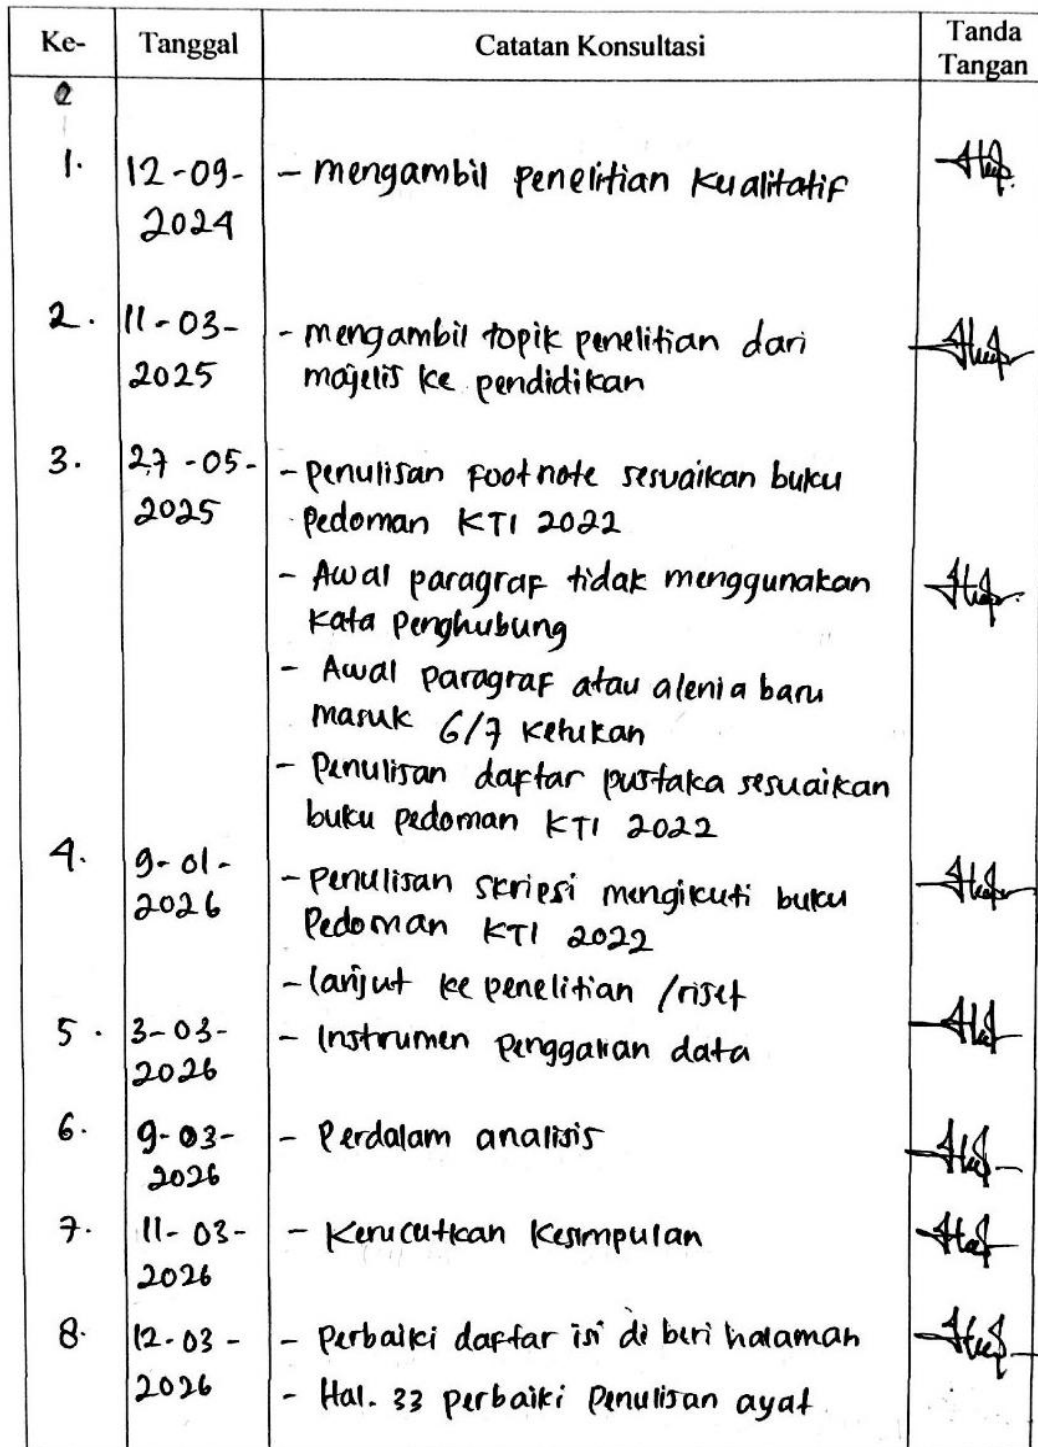 Ke- Tanggal Catatan Konsultasi Tanda
Tangan
1. 12-09- - mengambil penelitian kualitatif
2024
2. 11-03- - mengambil topik penelitian dari
2025 majelis ke pendidikan
3. 27-05- - penulisan footnote sesuaikan buku
2025 Pedoman KTI 2022
- Awal paragraf tidak menggunakan
kata penghubung
- Awal paragraf atau alenia baru
masuk 6/7 ketukan
- Penulisan daftar pustaka sesuaikan
buku pedoman KTI 2022
4. 9-01- - Penulisan skripsi mengikuti buku
2026 Pedoman KTI 2022
- lanjut ke penelitian /riset
5. 3-03- - Instrumen penggalian data
2026
6. 9-03- - Perdalam analisis
2026
7. 11-03- - Kerucutkan Kesimpulan
2026
8. 12-03- - Perbaiki daftar isi di beri halaman
2026 - Hal. 33 perbaiki Penulisan ayat